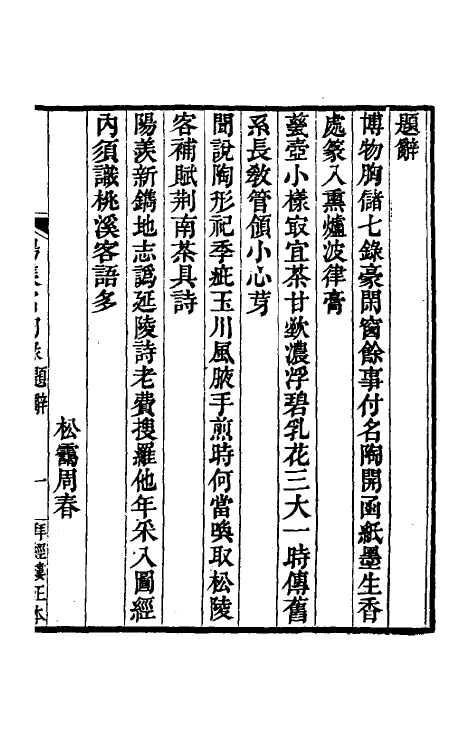 題辭
博物胸儲七錄豪閑窗餘事付名陶開函紙墨生香
處篆入熏爐波律膏
甆壺小樣㝡宜茶甘歠濃浮碧乳花三大一時傳舊
系長教管領小心芽
聞說陶形祀季疵玉川風腋手煎時何當喚取松陵
客補賦荆南茶具詩
陽羡新鐫地志譌延陵詩老費搜羅他年采入圖經
內須識桃溪客語多
松靄周春
題辭
一
拜經樓正本